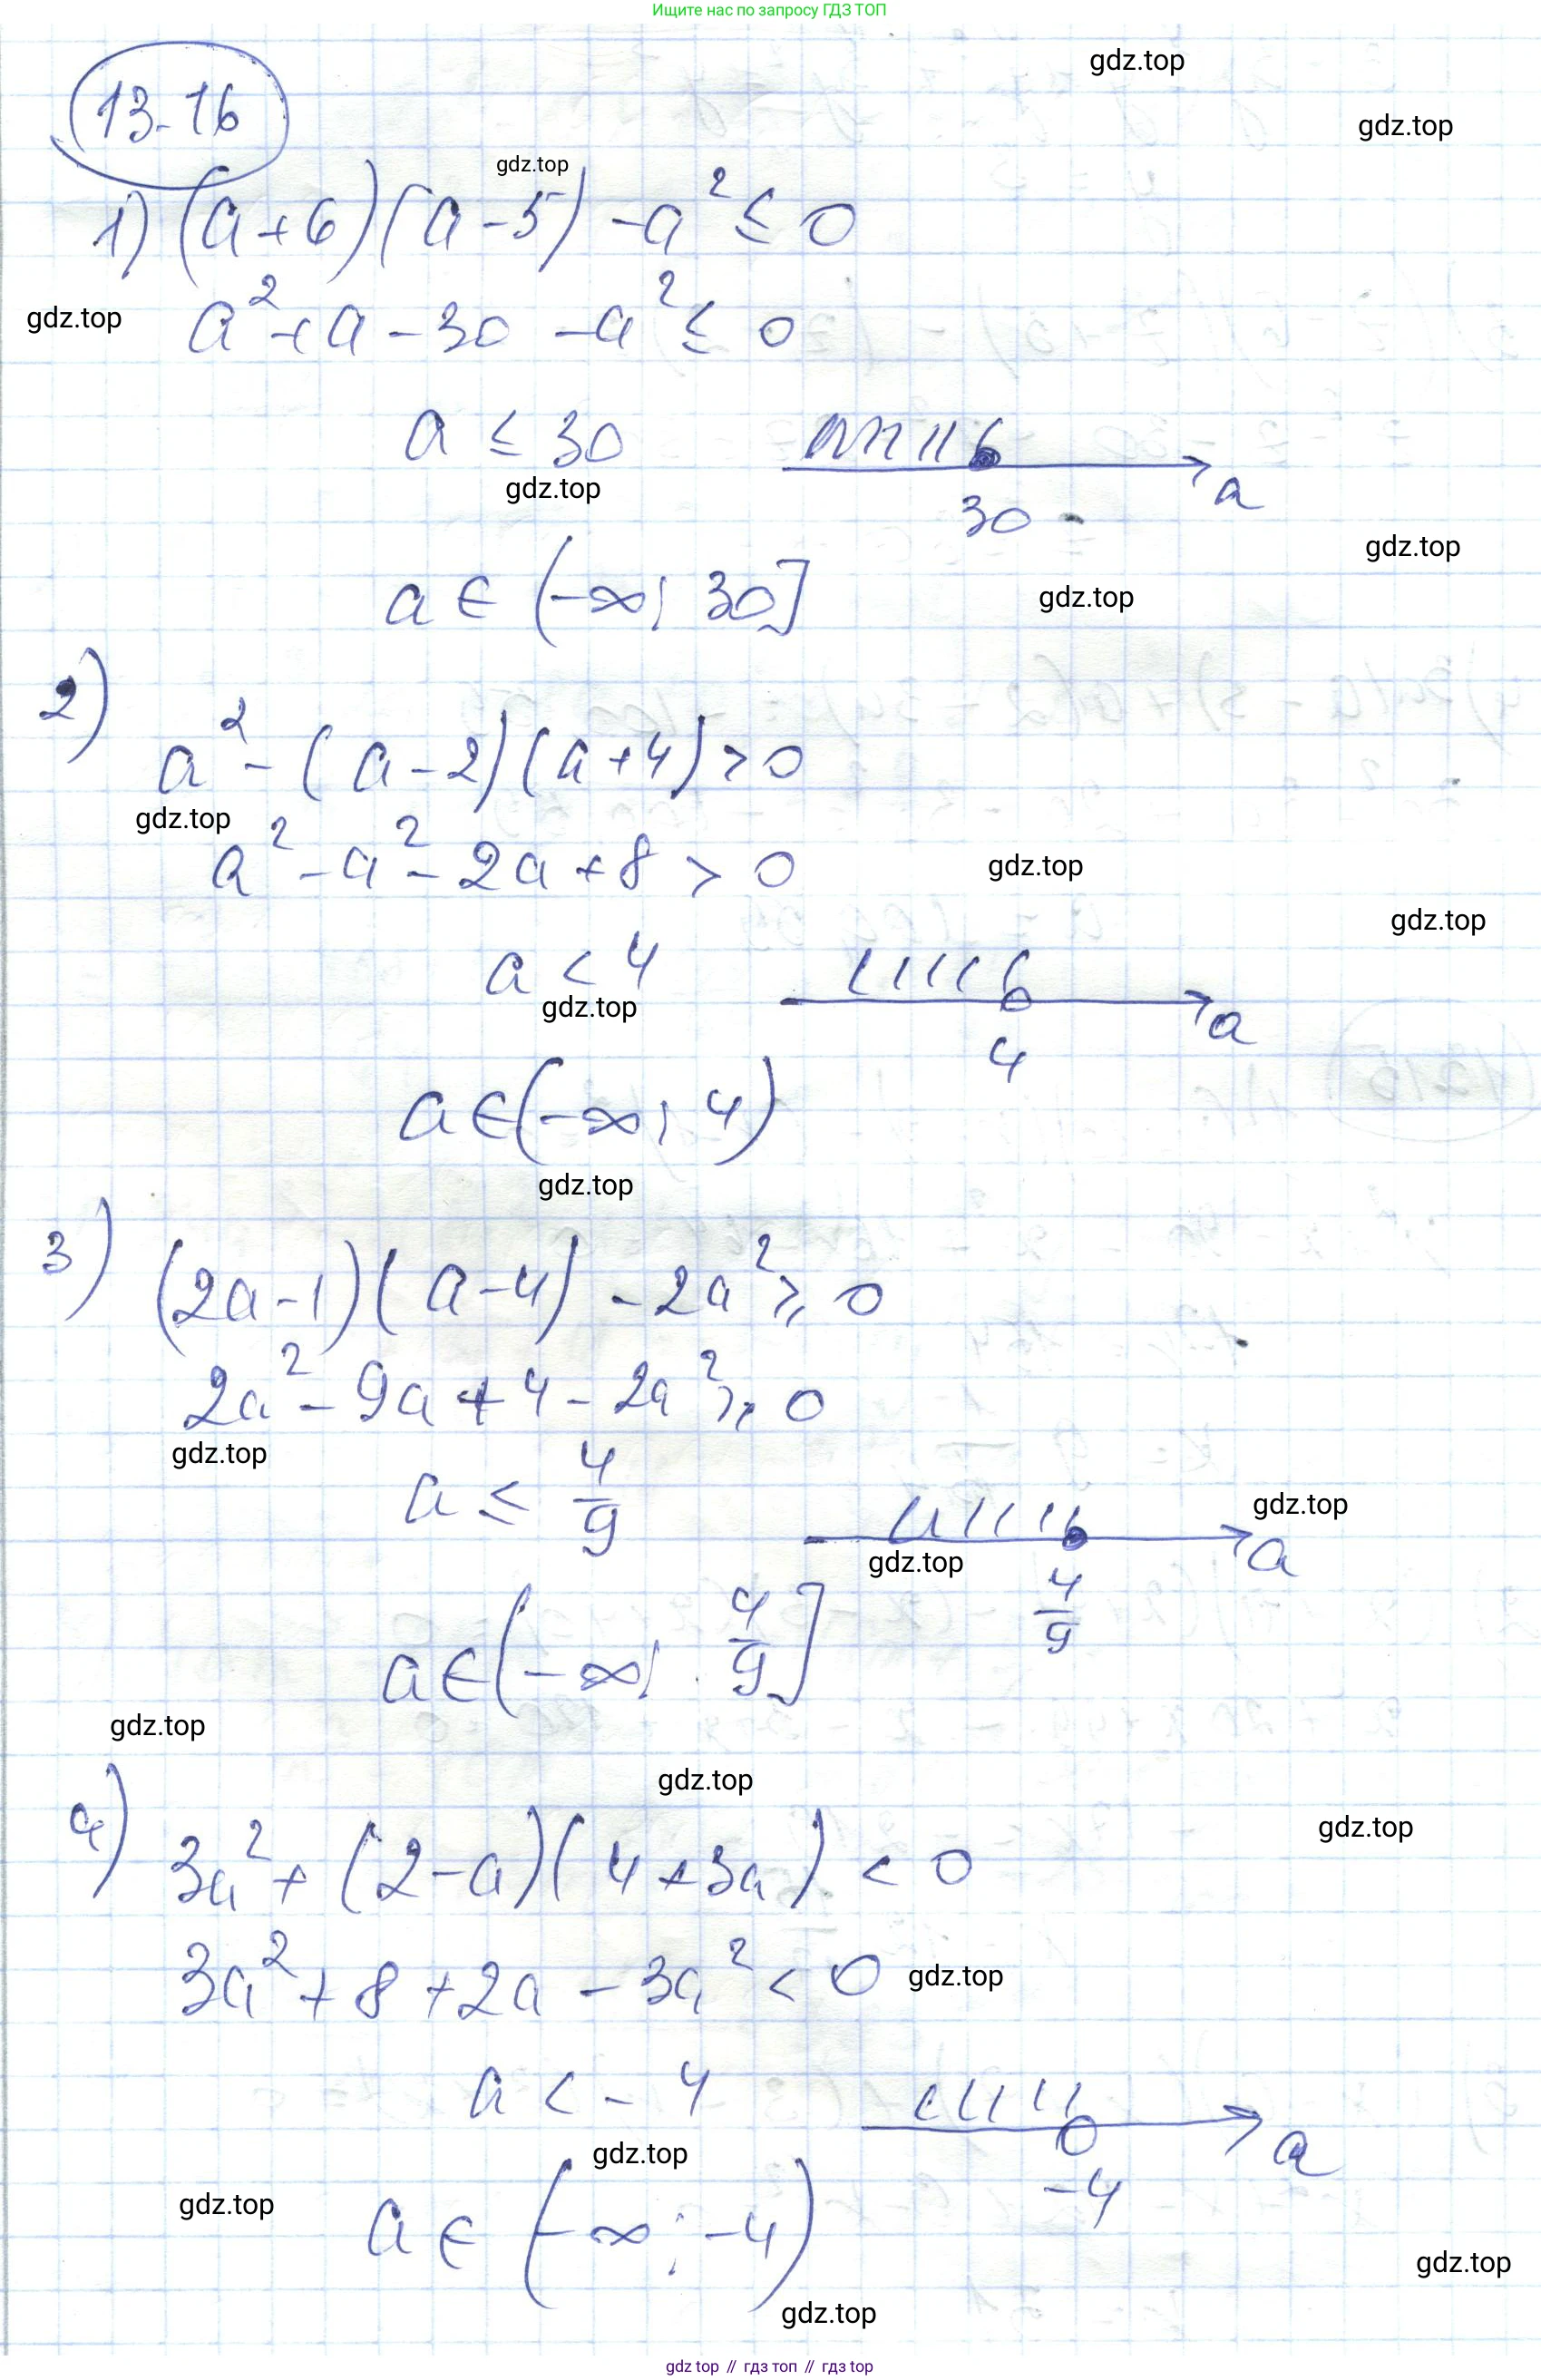 Ищите нас по запросу ГДЗ ТОП
gdz.top
13.16
gdz.top
gdz.top
1) (a+6)(a-5) -a² ≤ 0
gdz.top
a² + a - 30 - a² ≤ 0
a ≤ 30
a
gdz.top
30
gdz.top
a ∈ (-∞; 30]
gdz.top
2)
a² - (a-2)(a+4) > 0
gdz.top
a² - a² - 2a + 8 > 0
gdz.top
gdz.top
a < 4
a
gdz.top
4
a ∈ (-∞; 4)
gdz.top
3) (2a-1)(a-4) - 2a² ≥ 0
2a² - 9a + 4 - 2a² ≥ 0
gdz.top
a ≤ 4/9
gdz.top
a
gdz.top
4/9
a ∈ (-∞; 4/9]
gdz.top
gdz.top
4) 3a² + (2-a)(4+3a) < 0
gdz.top
3a² + 8 + 2a - 3a² < 0
gdz.top
a < -4
a
gdz.top
-4
gdz.top
a ∈ (-∞; -4)
gdz.top
gdz.top
gdz top // гдз топ // гдз top